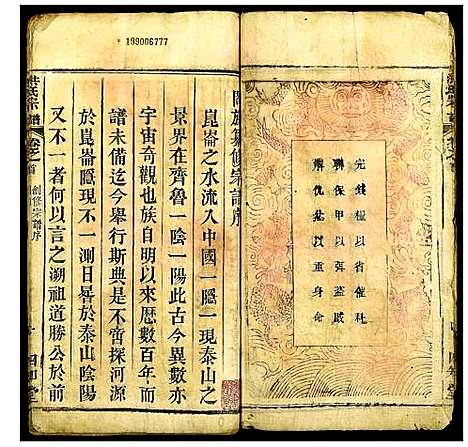 199006777
完錢糧以省催科
聯保甲以弭盜賊
解仇忿以重身命
洪氏宗譜
卷之首
闔族纂修宗譜序
崑崙之水流入中國一隱一現泰山之
景界在齊魯一陰一陽此古今異數亦
宇宙奇觀也族自明以來歷數百年而
譜未備迄今舉行斯典是不啻探河源
於崑崙隱現不一測日晷於泰山陰陽
又不一者何以言之溯祖道勝公於前
洪氏宗譜
卷之首
創修宗譜序